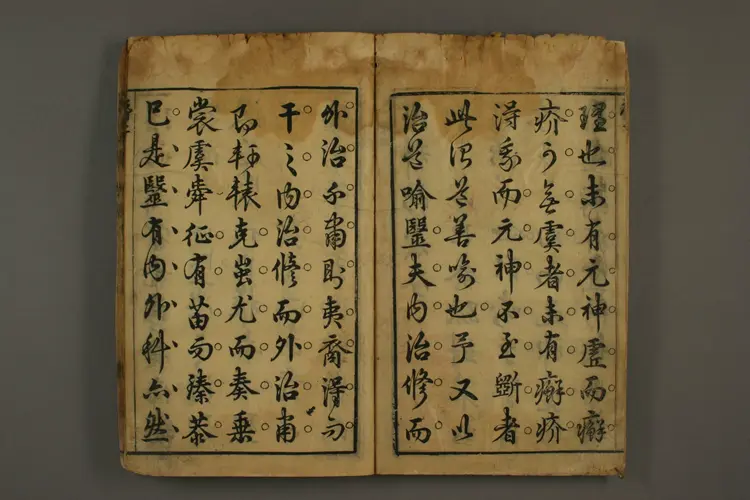 理也未有元神虛而癬
疥可無虞者未有癬疥
淂氣而元神不至斵者
此治道善喻也予又以
治道喻毉夫内治修而
外治不肅則夷裔淂而
干之内治修而外治肅
即軒轅克蚩尤而奏垂
裳虞舜征有苗而臻恭
已是毉有内外科亦然